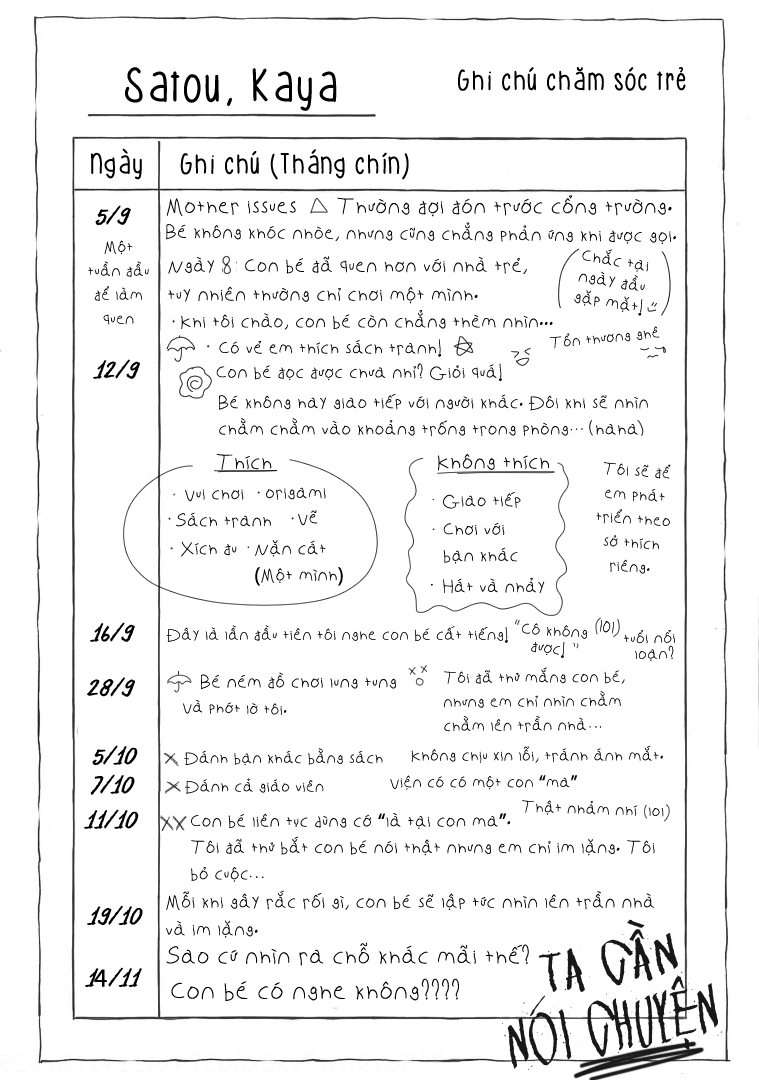 Satou, Kaya
Ghi chú chăm sóc trẻ
Ngày
Ghi chú (Tháng chín)
5/9
Một
tuần đầu
để làm
quen
Mother issues △ Thường đợi đón trước cổng trường.
Bé không khóc nhòe, nhưng cũng chẳng phản ứng khi được gọi.
Ngày 8: Con bé đã quen hơn với nhà trẻ,
tuy nhiên thường chỉ chơi một mình.
Chắc tại
ngày đầu
gặp mặt!
· Khi tôi chào, con bé còn chẳng thèm nhìn...
Tổn thương ghê
· Có vẻ em thích sách tranh!
12/9
Con bé đọc được chưa nhỉ? Giỏi quá!
Bé không hay giao tiếp với người khác. Đôi khi sẽ nhìn
chằm chằm vào khoảng trống trong phòng... (haha)
Thích
· Vui chơi · origami
· Sách tranh · Vẽ
· Xích đu · Nặn cát
(Một mình)
Không thích
· Giao tiếp
· Chơi với
bạn khác
· Hát và nhảy
Tôi sẽ để
em phát
triển theo
sở thích
riêng.
16/9
Đây là lần đầu tiên tôi nghe con bé cất tiếng!
"Cô không
được!"
(lol)
tuổi nổi
loạn?
28/9
Bé ném đồ chơi lung tung
và phớt lờ tôi.
Tôi đã thử mắng con bé,
nhưng em chỉ nhìn chằm
chằm lên trần nhà...
5/10
X Đánh bạn khác bằng sách
Không chịu xin lỗi, tránh ánh mắt.
7/10
X Đánh cả giáo viên
Viện cớ có một con "ma"
11/10
XX Con bé liên tục dùng cớ "là tại con ma".
Thật nhảm nhí (lol)
Tôi đã thử bắt con bé nói thật nhưng em chỉ im lặng. Tôi
bỏ cuộc...
19/10
Mỗi khi gây rắc rối gì, con bé sẽ lập tức nhìn lên trần nhà
và im lặng.
14/11
Sao cứ nhìn ra chỗ khác mãi thế?
Con bé có nghe không????
TA CẦN
NÓI CHUYỆN